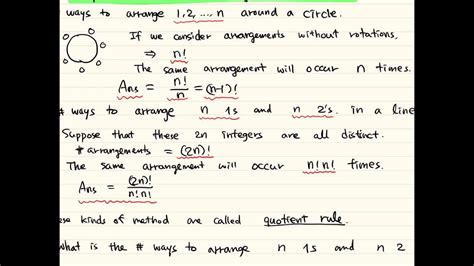 ways to arrange 1,2,...,n around a circle.
If we consider arrangements without rotations,
⇒ n!
The same arrangement will occur n times.
Ans = n!/n = (n-1)!
# ways to arrange n 1s and n 2's. in a line
Suppose that these 2n integers are all distinct.
# arrangements = (2n)!
The same arrangement will occur n!n! times.
Ans = (2n)!/n!n!
kinds of method are called quotient rule.
what is the # ways to arrange n 1s and n 2